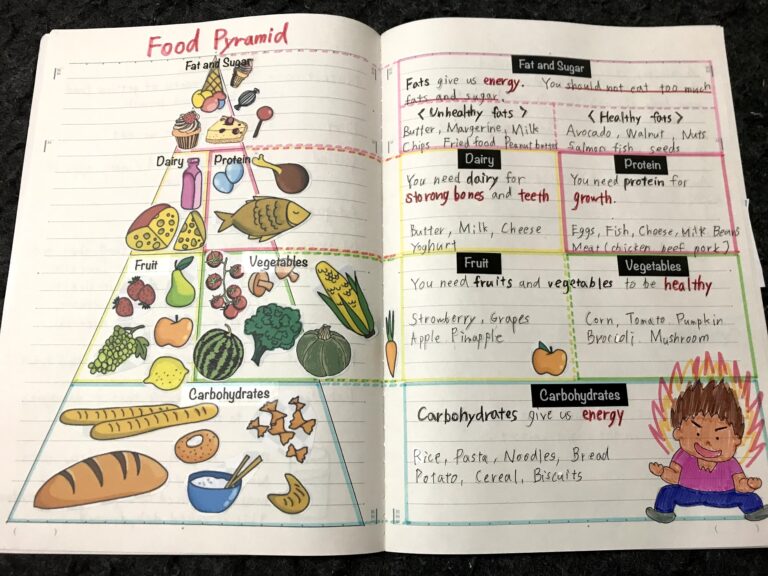 Food Pyramid
Fat and Sugar
Dairy
Protein
Fruit
Vegetables
Carbohydrates
Fat and Sugar
Fats give us energy. You should not eat too much
fats and sugar.
< Unhealthy fats >
Butter, Margerine, Milk
Chips Fried food Peanut butter
< Healthy fats >
Avocado, Walnut, Nuts
Salmon fish seeds
Dairy
You need dairy for
storong bones and teeth
Butter, Milk, Cheese
Yoghurt
Protein
You need protein for
growth.
Eggs, Fish, Cheese, Milk Beans
Meat (chicken beef pork)
Fruit
Vegetables
You need fruits and vegetables to be healthy
Strawberry, Grapes
Apple Pinapple
Corn, Tomato, Pumpkin
Brocioli Mushroom
Carbohydrates
Carbohydrates give us energy
Rice, Pasta, Noodles, Bread
Potato, Cereal, Biscuits